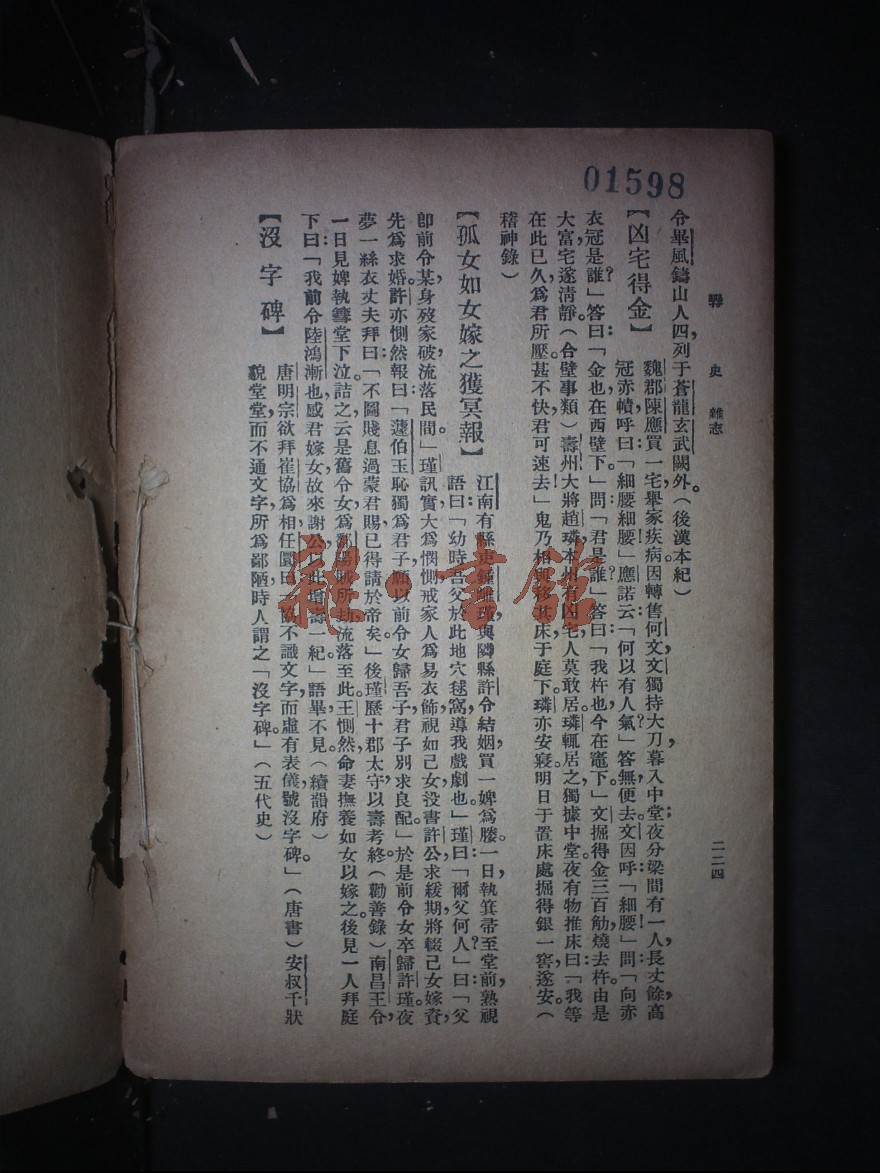 01598
聯史　雜志
二二四
令畢風鑄山人四列于蒼龍玄武闕外。（後漢本紀）
【凶宅得金】
魏郡陳應買一宅舉家疾病因轉售何文文獨持大刀暮入中堂；夜分梁間有一人，長丈餘，高
冠赤幘，呼曰：「細腰細腰！」應諾云：「何以有人氣？」答無，便去。文因呼：「細腰！」問：「向赤
衣冠是誰？」答曰：「金也，在西壁下。」問：「君是誰？」答曰：「我杵也，今在竈下。」文掘得金三百觔，燒去杵。由是
大富，宅遂清靜。（合壁事類）壽州大將趙璘，本州有凶宅，人莫敢居。璘輒居之，獨據中堂。夜有物推床曰：「我等
在此已久，爲君所壓，甚不快，君可速去！」鬼乃相與移其床于庭下。璘亦安寢。明日于置床處掘得銀一窖，遂安。（
稽神錄）
【孤女如女嫁之獲冥報】
江南有縣吏鍾離瑾與隣縣許令結姻，買一婢爲媵。一日，執箕帚至堂前，熟視
語曰：「幼時吾父於此地穴毬窩，導我戲劇也。」瑾曰：「爾父何人？」曰：「父
卽前令某，身歿家破，流落民間。」瑾訊實，大爲憫惻，戒家人爲易衣飾，視如己女，沒書許公，求緩期，將輟己女嫁資，
先爲求婚。許亦惻然，報曰：「蘧伯玉恥獨爲君子，願以前令女歸吾子，君子別求良配。」於是前令女卒歸許。瑾夜
夢一綠衣丈夫拜曰：「不圖賤息過蒙君賜，已得請於帝矣。」後瑾歷十郡太守，以壽考終。（勸善錄）南昌王令，
一日見婢執篲堂下泣。詰之，云是舊令女，爲鄱陽賊所劫，流落至此。王惻然，命妻撫養如女以嫁之。後見一人拜庭
下曰：「我前令陸鴻漸也，感君嫁女，故來謝公，以此增壽一紀。」語畢不見。（續韻府）
【沒字碑】
唐明宗欲拜崔協爲相，任圜曰：「協不識文字，而虛有表儀，號沒字碑。」（唐書）安叔千狀
貌堂堂，而不通文字，所爲鄙陋，時人謂之「沒字碑。」（五代史）